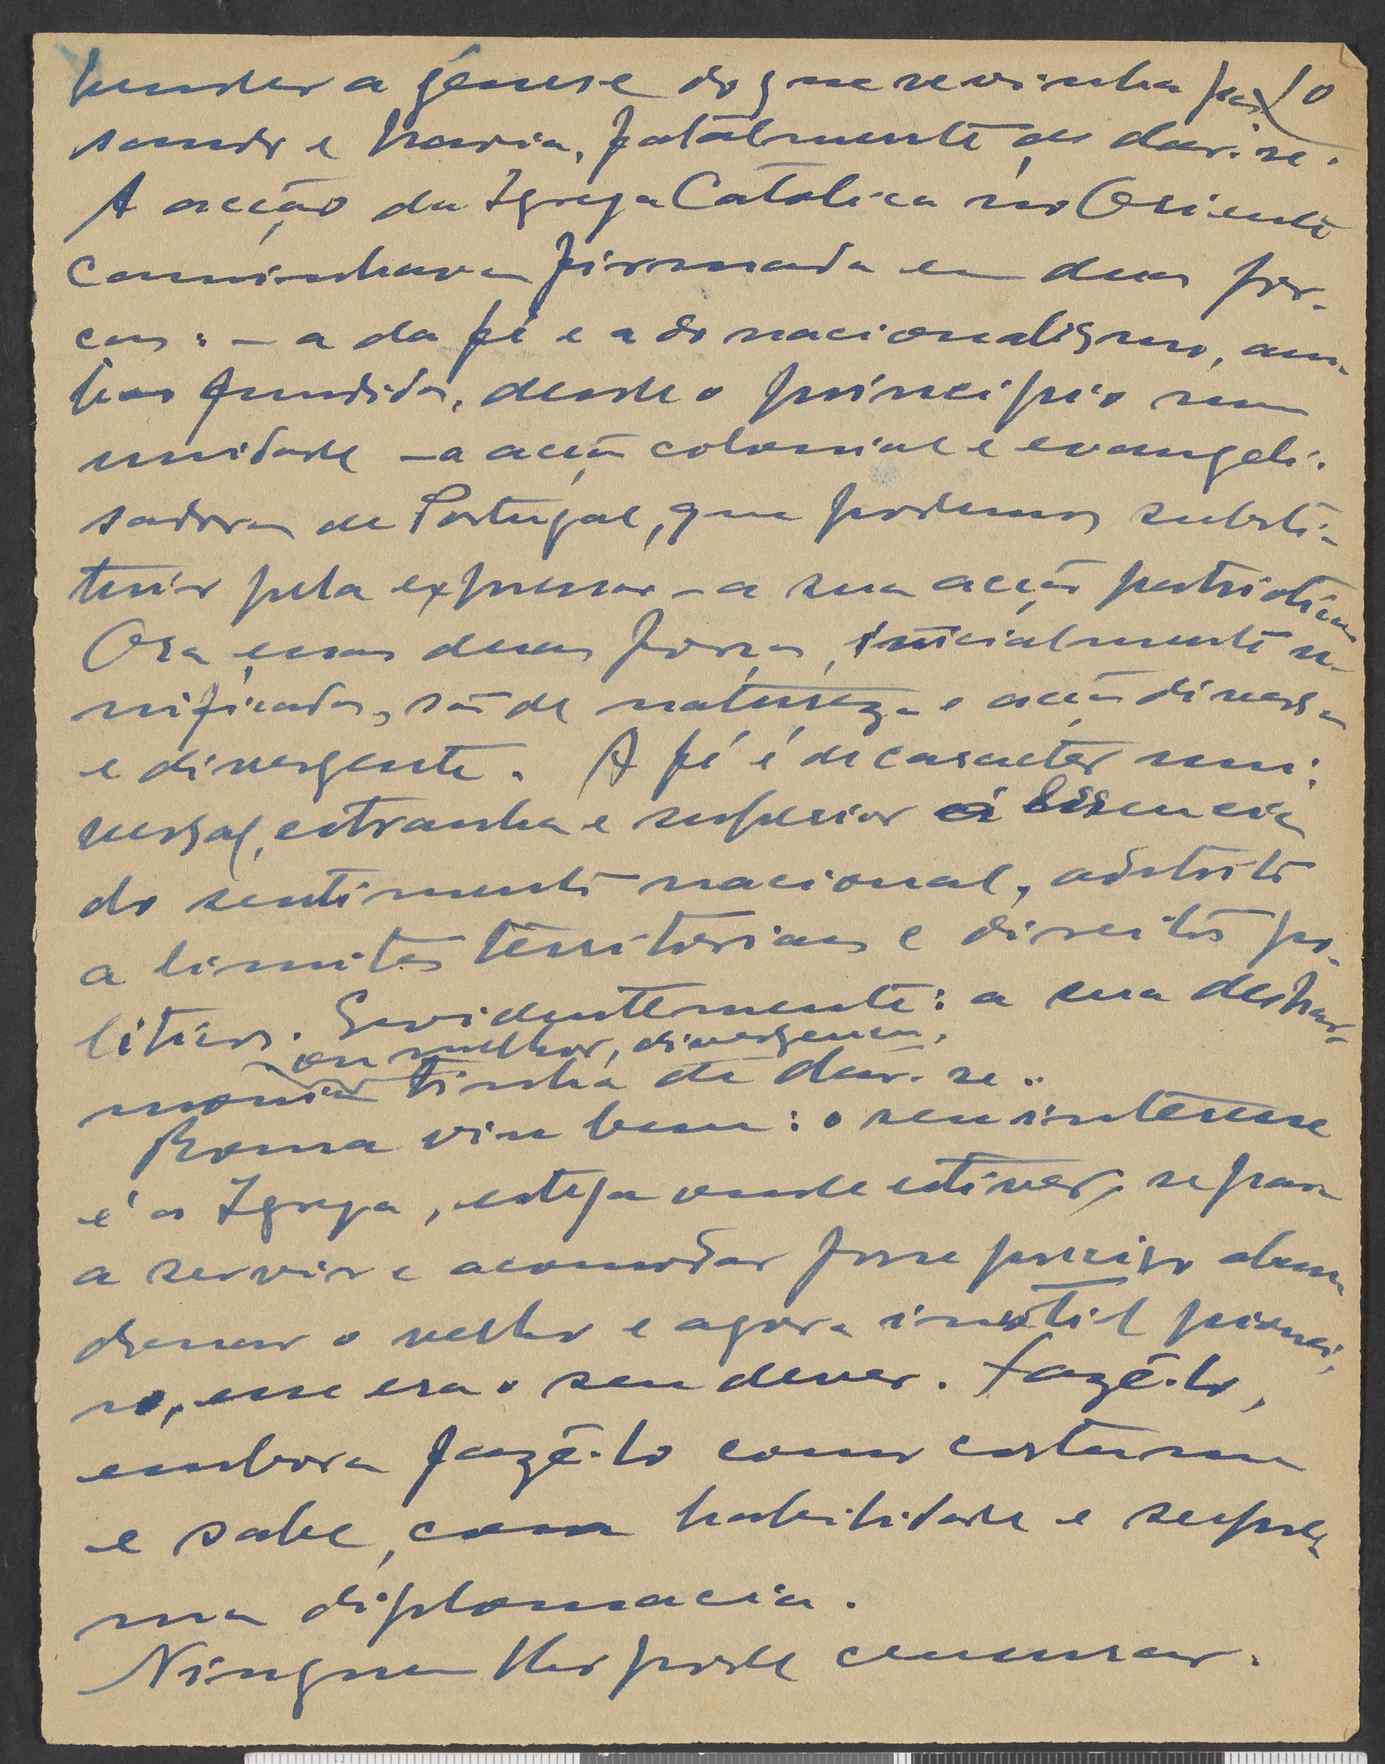 10
pender a génese do que se vinha pas-
sando e havia, fatalmente, de dar-se.
A acção da Igreja Catolica no Oriente
caminhava firmada em duas for-
ças: - a da fé e a do nacionalismo, am-
bas fundidas, desde o principio numa
unidade - a acção colonial e evangeli-
sadora de Portugal, que podemos substi-
tuir pela expressão - a sua acção patriotica.
Ora, essas duas forças, inicialmente u-
nificadas, são de natureza e acção diversa
e divergente. A fé é de caracter uni-
versal, estranha e superior á essencia
do sentimento nacional, adstrito
a limites territoriais e direitos po-
liticos. Evidentemente: a sua deshar-
ou melhor, divergencia,
monia tinha de dar-se..
Roma viu bem: o seu interesse
é a Igreja, esteja onde estiver, se para
a servir e acomodar fosse preciso aban-
donar o velho e agora inutil pionei-
ro, esse era o seu dever. Fazê-lo,
embora fazê-lo como costuma
e sabe, com habilidade e supre-
ma diplomacia.
Ninguem lho pode censurar.